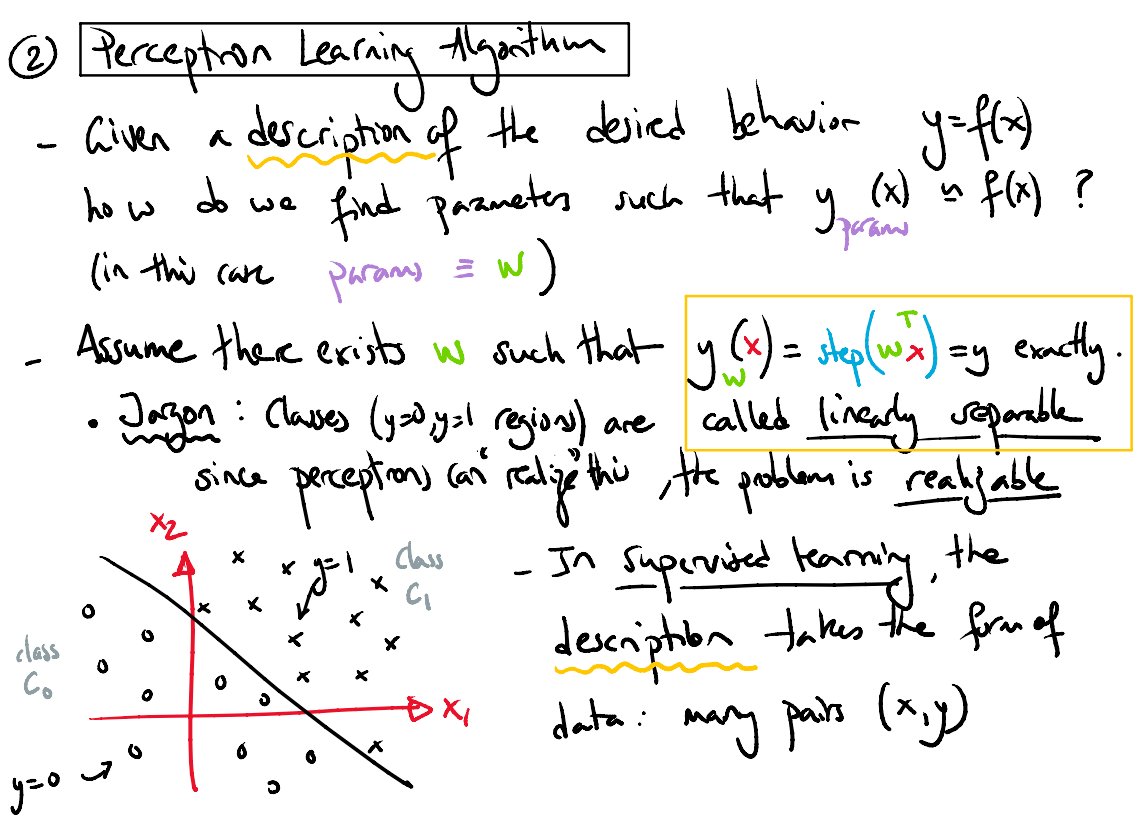 ② Perceptron Learning Algorithm
- Given a description of the desired behavior y=f(x)
how do we find parameters such that y_params(x) ≃ f(x) ?
(in this case params ≡ w)
- Assume there exists w such that y_w(x) = step(w^T x) = y exactly.
• Jargon : Classes (y=0,y=1 regions) are called linearly separable
since perceptrons can "realize" this, the problem is realizable
x2
y=1
class
C1
class
C0
x1
y=0
- In supervised learning, the
description takes the form of
data: many pairs (x,y)